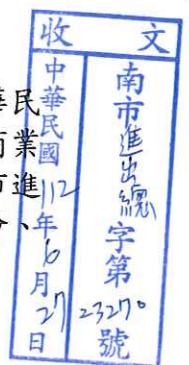 收文
南市進出總字第23270號
中華民國112年6月27日
民
業
進